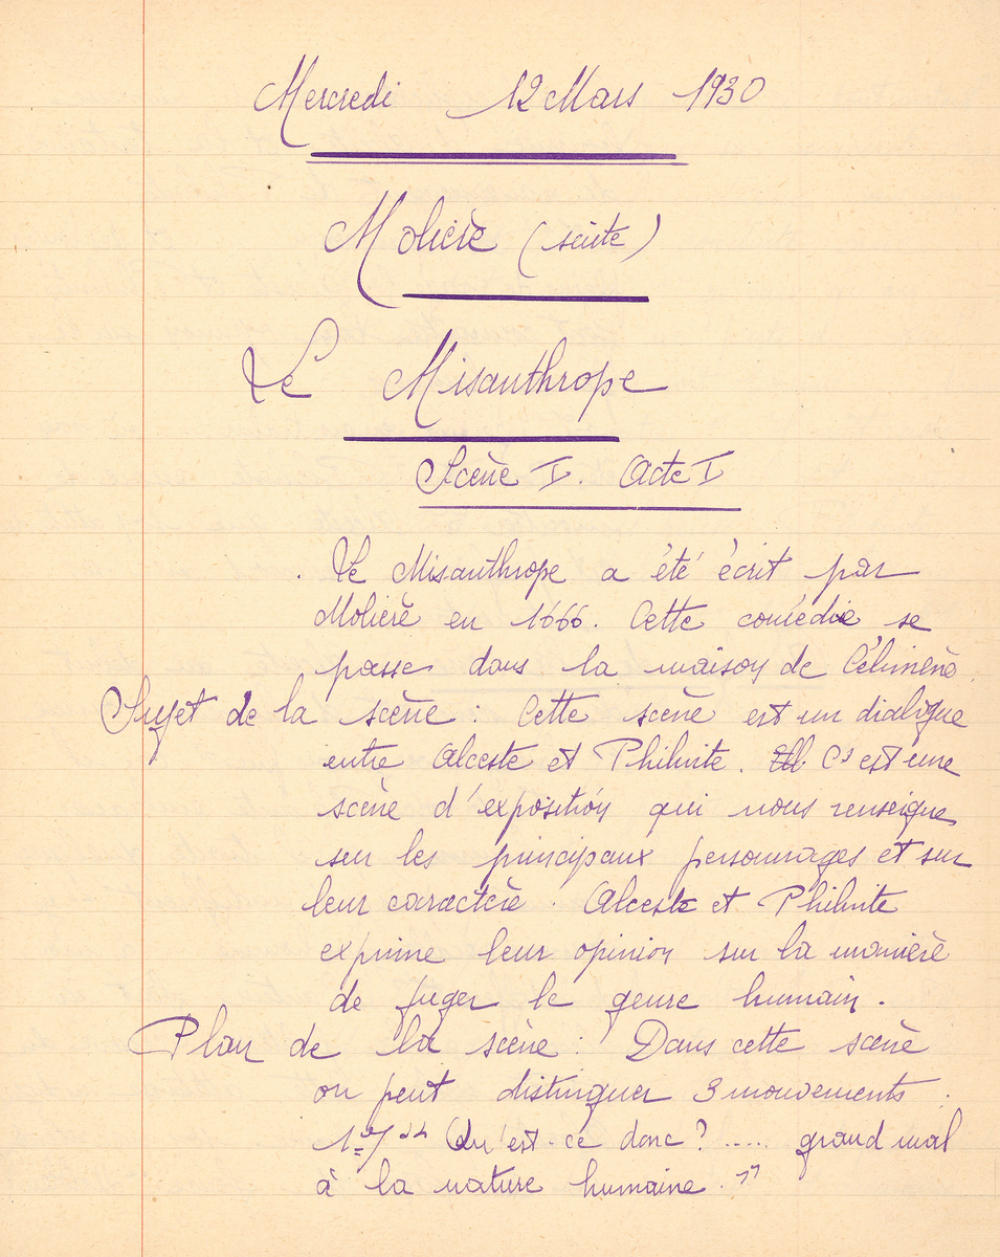 Mercredi 12 Mars 1930
Molière (suite)
Le Misanthrope
Scène I. Acte I
Le Misanthrope a été écrit par
Molière en 1666. Cette comédie se
passe dans la maison de Célimène.
Sujet de la scène : Cette scène est un dialogue
entre Alceste et Philinte. C'est une
scène d'exposition qui nous renseigne
sur les principaux personnages et sur
leur caractère. Alceste et Philinte
exprime leur opinion sur la manière
de juger le genre humain.
Plan de la scène : Dans cette scène
on peut distinguer 3 mouvements.
1er/ "Qu'est-ce donc ? ..... grand mal
à la nature humaine."